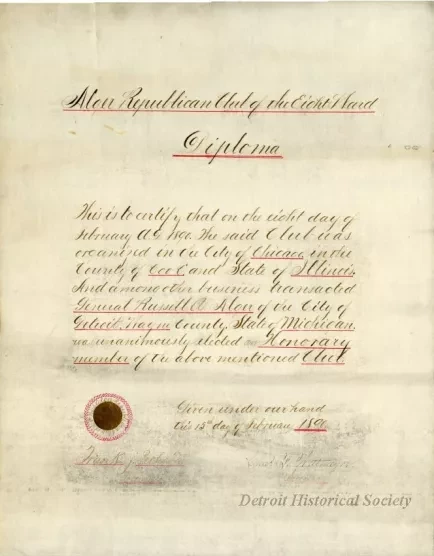 Alger Republican Club of the Eight Ward
Diploma
This is to certify that on the eight day of
February A.D. 1890. The said Club was
organised in the City of Chicago, in the
County of Cook and State of Illinois.
And among other business transacted
General Russell A Alger of the City of
Detroit Wayne County, State of Michigan
was unanimously elected an Honorary
member of the above mentioned Club.
Given under our hand
this 15th day of February 1890
Detroit Historical Society